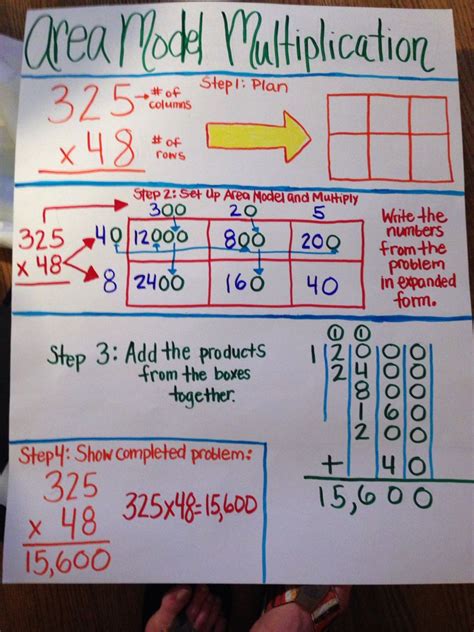 Area Model Multiplication
Step 1: Plan
325 → # of columns
x 48 # of rows
Step 2: Set Up Area Model and Multiply
300 20 5
325
x 48
40 12000 800 200
8 2400 160 40
Write the
numbers
from the
problem
in expanded
form.
Step 3: Add the products
from the boxes
together.
1 1
12000
2400
800
160
200
+ 40
15,600
Step 4: Show completed problem:
325
x 48
15,600
325x48=15,600